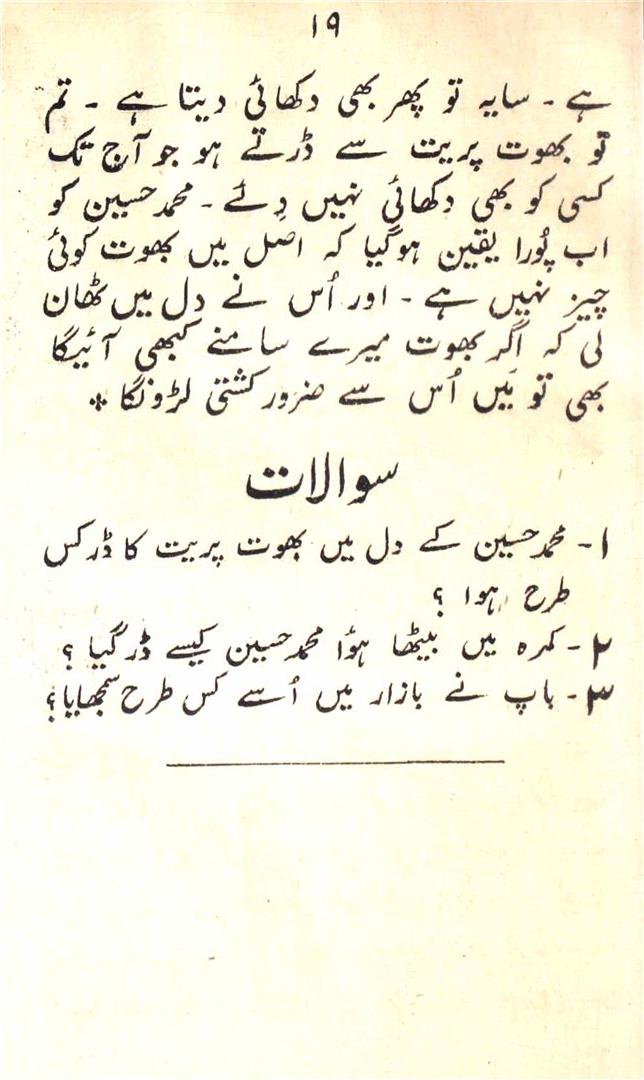 ۱۹
ہے ۔ سایہ تو پھر بھی دکھائی دیتا ہے ۔ تم
تو بھوت پریت سے ڈرتے ہو جو آج تک
کسی کو بھی دکھائی نہیں دِئے ۔ محمد حسین کو
اب پُورا یقین ہوگیا کہ اصل میں بھوت کوئی
چیز نہیں ہے ۔ اور اُس نے دل میں ٹھان
لی کہ اگر بھوت میرے سامنے کبھی آئیگا
بھی تو مَیں اُس سے ضرور کشتی لڑونگا *
سوالات
۱ ۔ محمد حسین کے دل میں بھوت پریت کا ڈر کس
طرح ہوا ؟
۲ ۔ کمرہ میں بیٹھا ہؤا محمد حسین کیسے ڈر گیا ؟
۳ ۔ باپ نے بازار میں اُسے کس طرح سمجھایا ؟